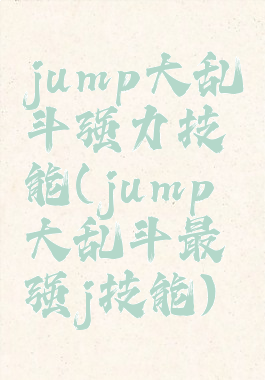 jump大乱
斗强力技
能(jump
大乱斗最
强j技能)